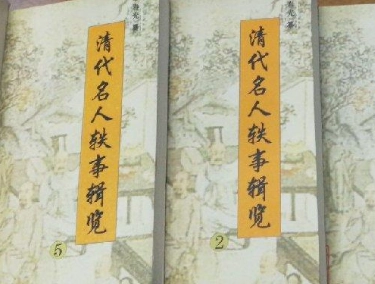 清代名人轶事辑览
5
春光 纂
清代名人轶事辑览
2